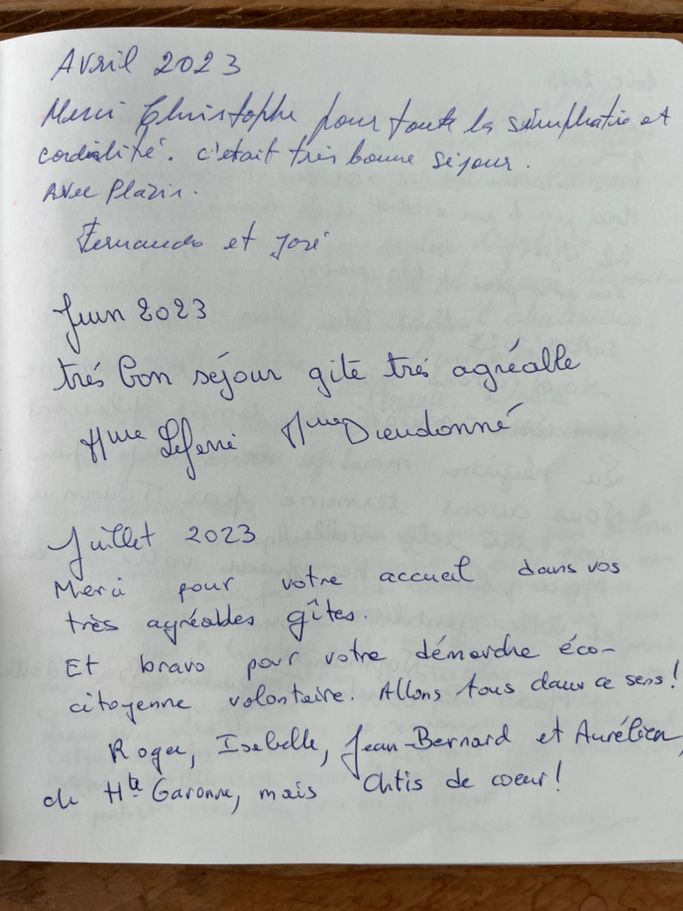 Avril 2023
Merci Christophe pour toute la simphatie et
cordialité. c'etait très bonne séjour.
Avec Plazir.
Fernando et José
Juin 2023
trés bon séjour gite trés agréable
Mme Leferré Mme Dieudonné
Juillet 2023
Merci pour votre accueil dans vos
très agréables gîtes.
Et bravo pour votre démarche éco-
citoyenne volontaire. Allons tous dans ce sens!
Roger, Isabelle, Jean-Bernard et Aurélien,
de Hte Garonne, mais Chtis de coeur!